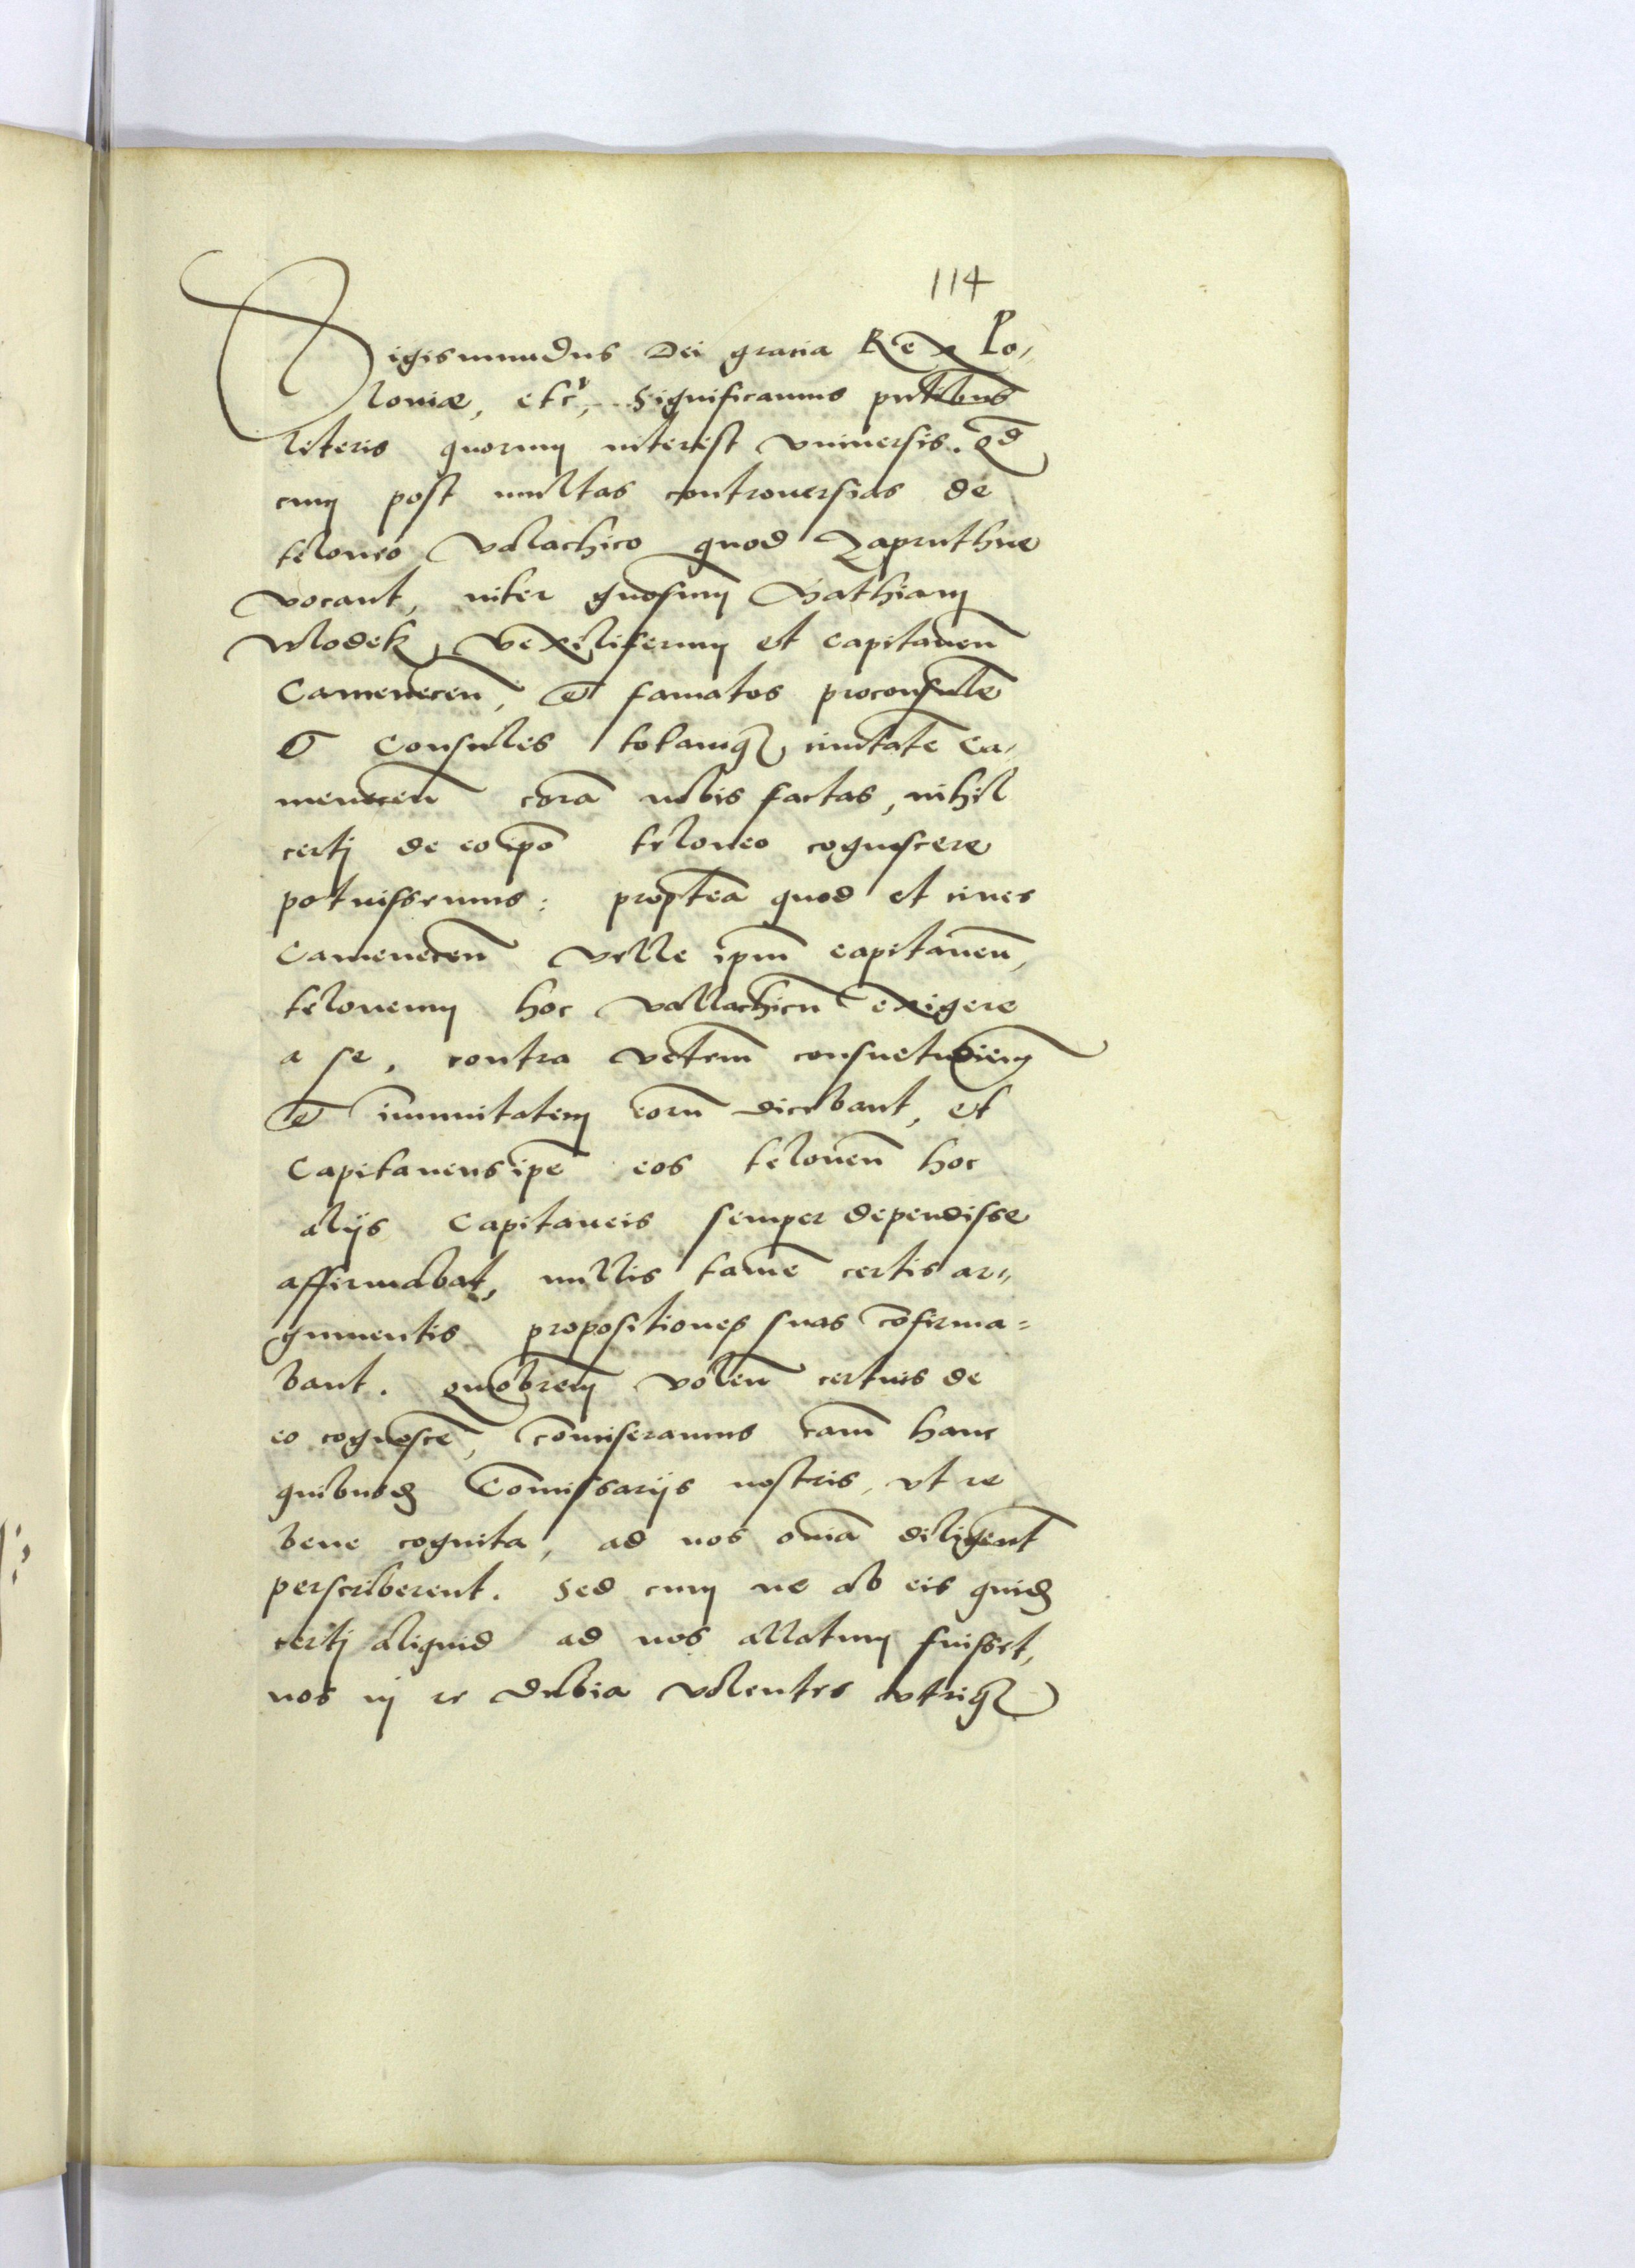 114
Sigismundus Dei gracia Rex Po,
loniæ, etc, Significamus pntibus
literis quorum interest vniuersis. Qd
cum post multas controuersias de
teloneo Valachico quod Zapruthne
vocant, inter gnosum Mathiam
Wlodek, Vexiliferum et capitaneū
Camenecen̄, et famatos proconsulē
et Consules totamq; ciuitatē Ca,
menecen̄ corā nobis factas, nihil
certi de eo ipō teloneo cognoscere
potuissemus: proptea quod et ciues
Camenecen̄ velle ipm̄ capitaneū,
teloneum hoc vallachicū exigere
a se, contra veterm̄ consuetudiem
et immunitatem eorū dicebant, et
Capitaneus ipē eos teloneū hoc
alijs Capitaneis semper dependisse
affirmabat, nullis tamē certis ar,,
gumentis propositiones suas cōfirma=
bant. Quobrem volen̄ certius de
eo cognoscē, cōmiseramus cam̄ hanc
quibusd Com̄issarijs nostris, vt re
bene cognita, ad nos om̄ia diligent
perscriberent. Sed cum ne ab eis quid
certi aliquid ad nos allatum fuisset,
nos in re dubia volentes vtriq;